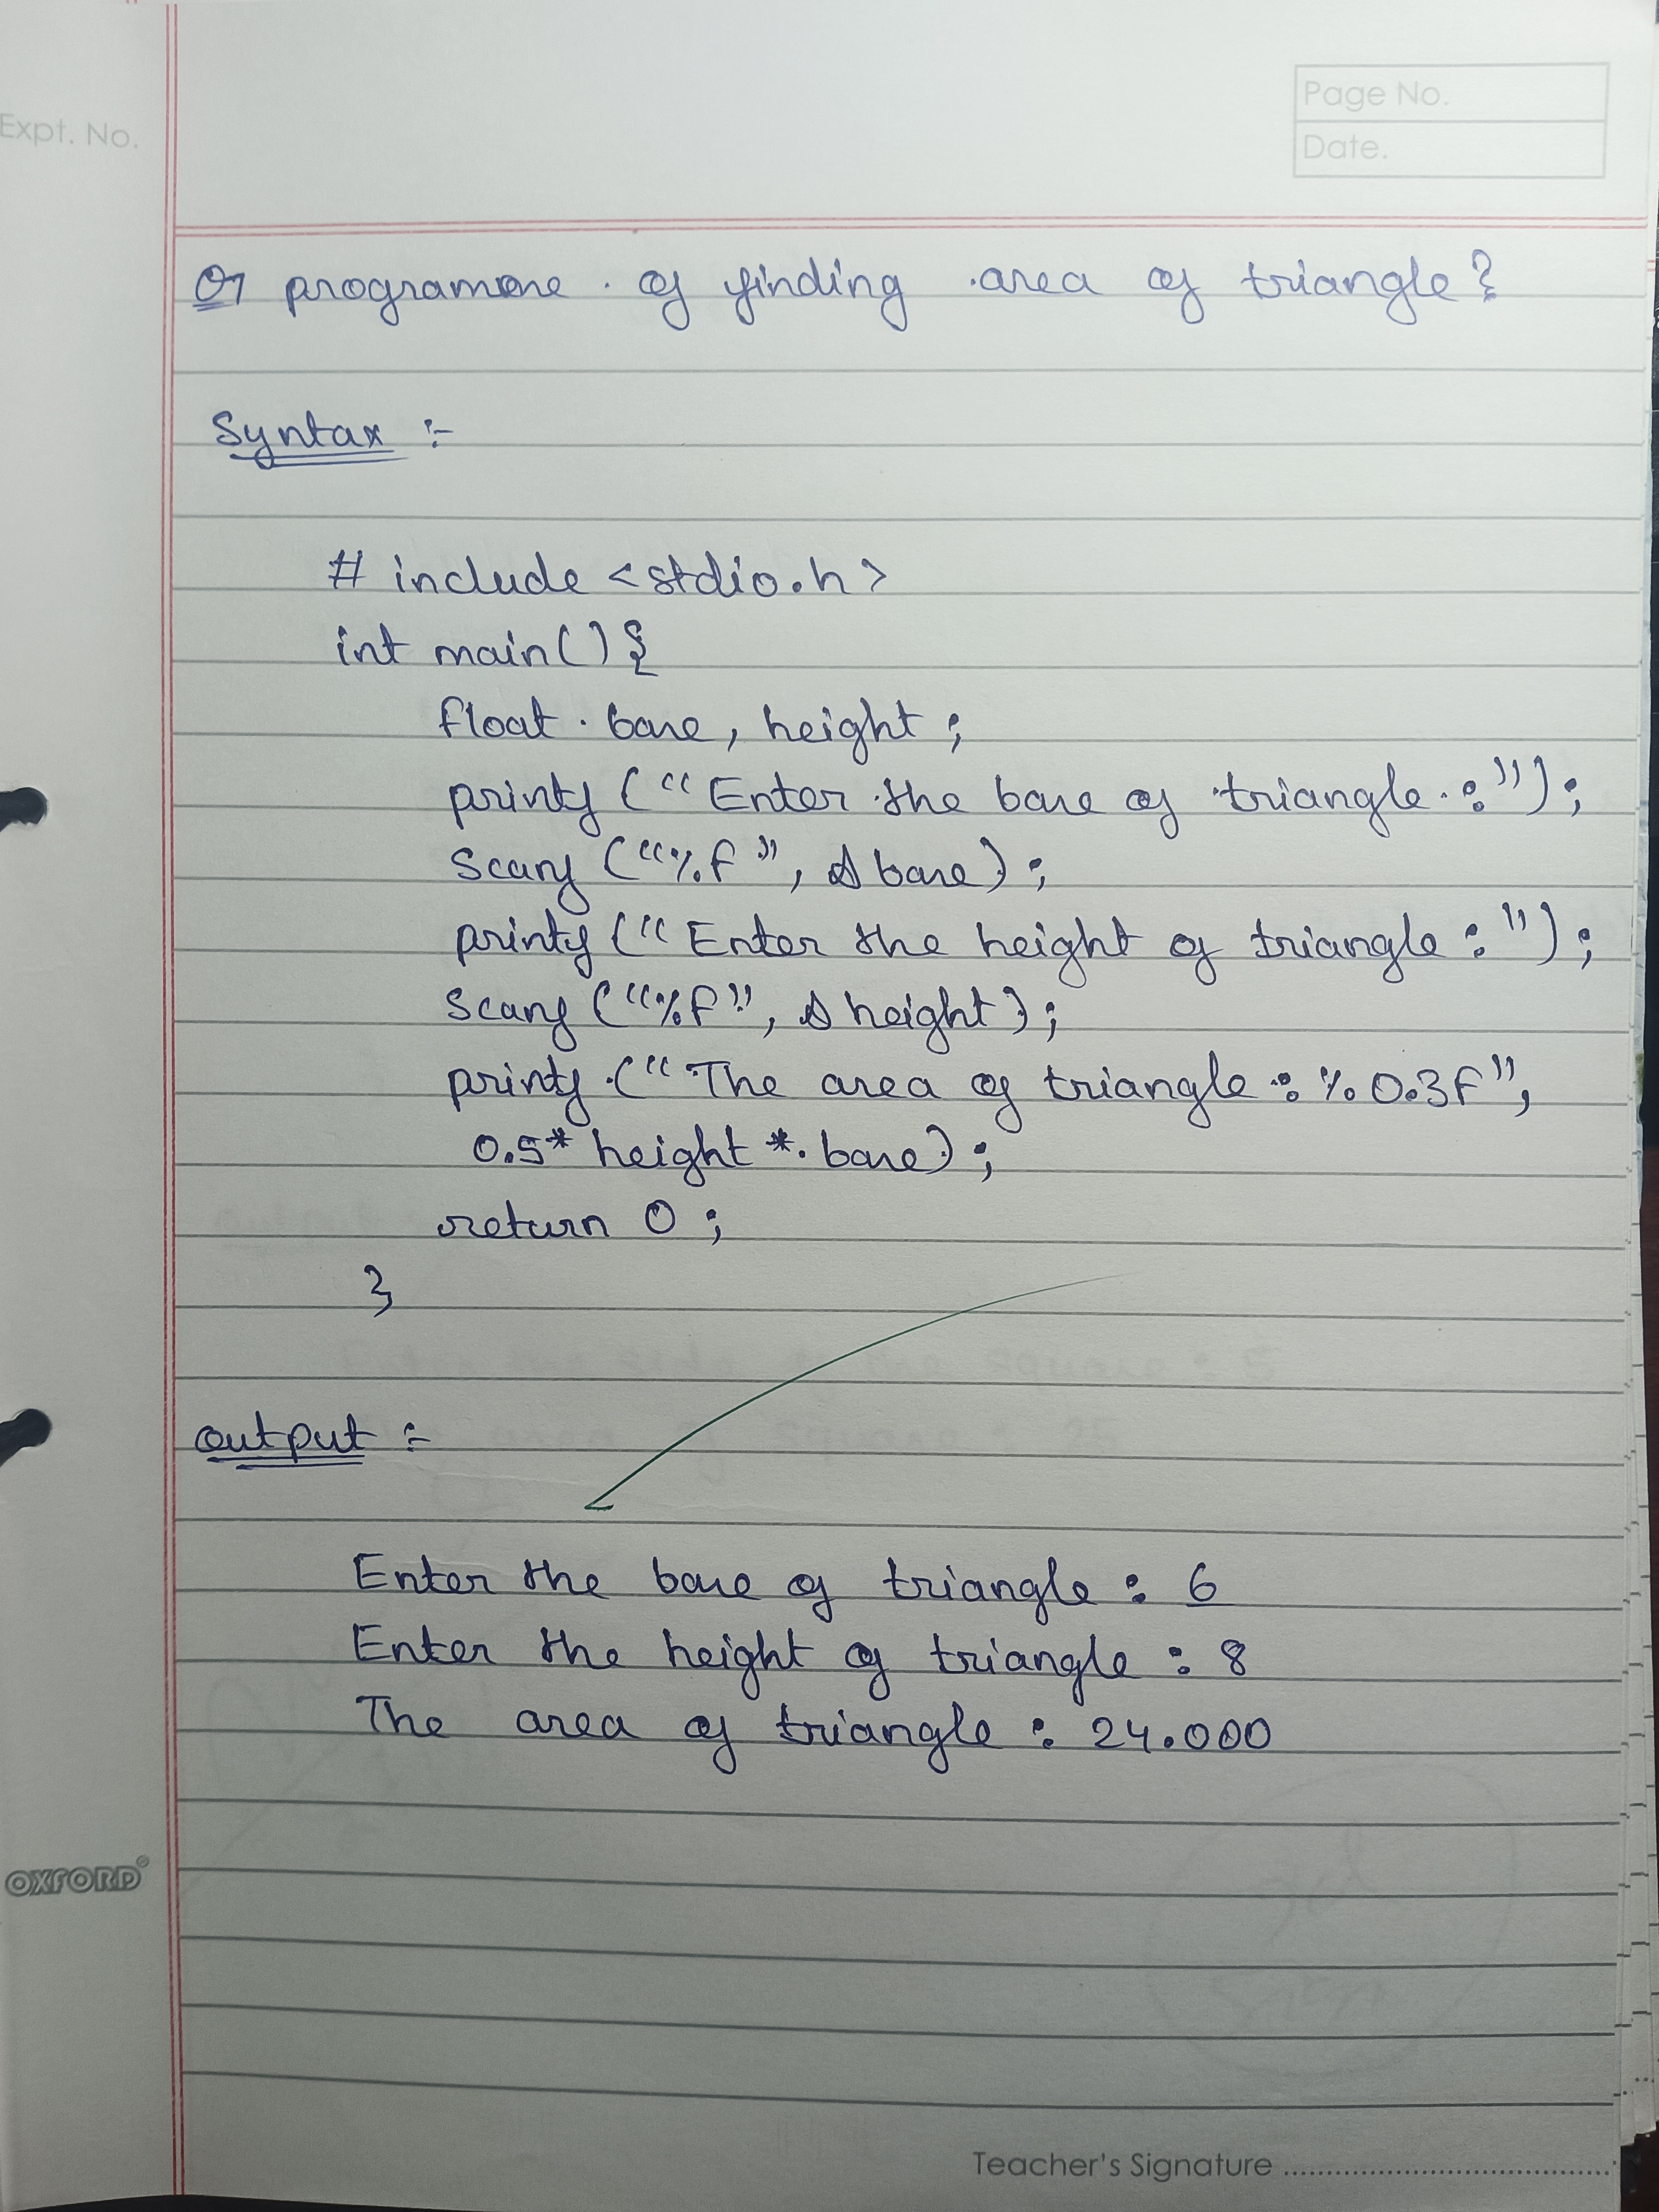 Expt. No.
Page No.
Date.
Q1 programme of finding area of triangle?
Syntax :-
# include <stdio.h>
int main(){
float base, height ;
printf ("Enter the base of triangle :");
Scanf ("%f", &base);
printf ("Enter the height of triangle : ");
Scanf ("%f", &height);
printf ("The area of triangle : %0.3f",
0.5* height * base);
return 0 ;
}
output :-
Enter the base of triangle : 6
Enter the height of triangle : 8
The area of triangle : 24.000
OXFORD
Teacher's Signature